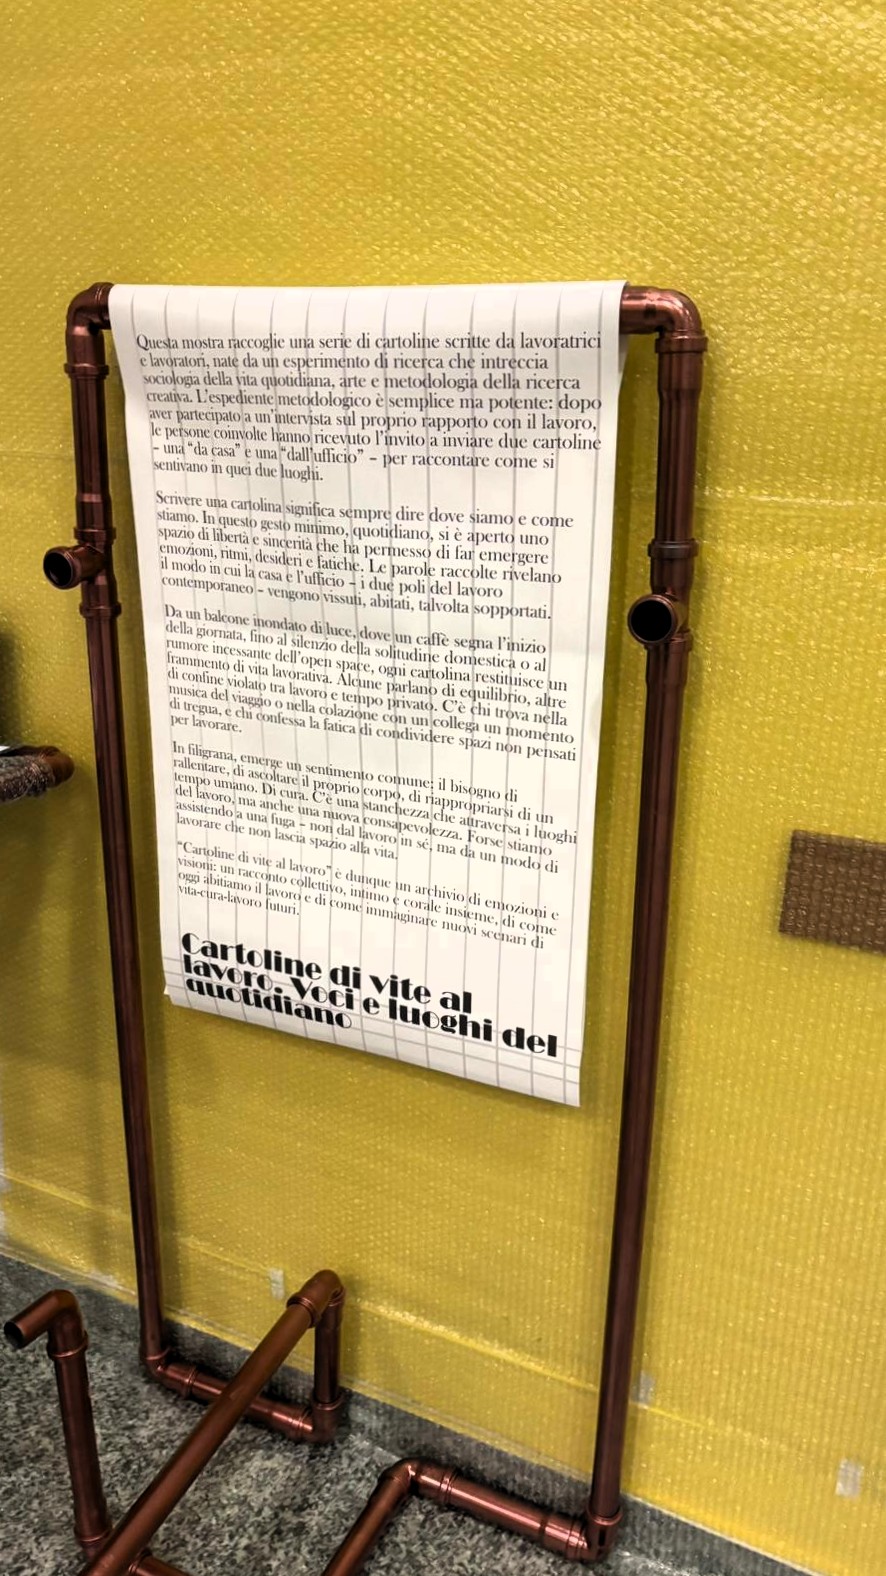 Questa mostra raccoglie una serie di cartoline scritte da lavoratrici
e lavoratori, nate da un esperimento di ricerca che intreccia
sociologia della vita quotidiana, arte e metodologia della ricerca
creativa. L'espediente metodologico è semplice ma potente: dopo
aver partecipato a un'intervista sul proprio rapporto con il lavoro,
le persone coinvolte hanno ricevuto l'invito a inviare due cartoline
– una “da casa” e una “dall'ufficio” – per raccontare come si
sentivano in quei due luoghi.
Scrivere una cartolina significa sempre dire dove siamo e come
stiamo. In questo gesto minimo, quotidiano, si è aperto uno
spazio di libertà e sincerità che ha permesso di far emergere
emozioni, ritmi, desideri e fatiche. Le parole raccolte rivelano
il modo in cui la casa e l'ufficio – i due poli del lavoro
contemporaneo – vengono vissuti, abitati, talvolta sopportati.
Da un balcone inondato di luce, dove un caffè segna l'inizio
della giornata, fino al silenzio della solitudine domestica o al
rumore incessante dell'open space, ogni cartolina restituisce un
frammento di vita lavorativa. Alcune parlano di equilibrio, altre
di confine violato tra lavoro e tempo privato. C'è chi trova nella
musica del viaggio o nella colazione con un collega un momento
di tregua, e chi confessa la fatica di condividere spazi non pensati
per lavorare.
In filigrana, emerge un sentimento comune: il bisogno di
rallentare, di ascoltare il proprio corpo, di riappropriarsi di un
tempo umano. Di cura. C'è una stanchezza che attraversa i luoghi
del lavoro, ma anche una nuova consapevolezza. Forse stiamo
assistendo a una fuga – non dal lavoro in sé, ma da un modo di
lavorare che non lascia spazio alla vita.
“Cartoline di vite al lavoro” è dunque un archivio di emozioni e
visioni: un racconto collettivo, intimo e corale insieme, di come
oggi abitiamo il lavoro e di come immaginare nuovi scenari di
vita-cura-lavoro futuri.
Cartoline di vite al
lavoro. Voci e luoghi del
quotidiano